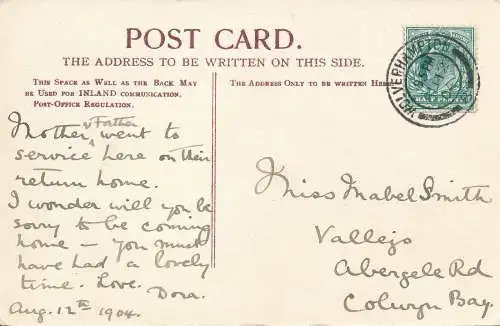 POST CARD.
THE ADDRESS TO BE WRITTEN ON THIS SIDE.
THIS SPACE AS WELL AS THE BACK MAY
BE USED FOR INLAND COMMUNICATION.
POST-OFFICE REGULATION.
Mother & Father went to
service here on their
return home.
I wonder will you be
sorry to be coming
home — you must
have had a lovely
time. Love.
Dora.
Aug. 12th 1904.
THE ADDRESS ONLY TO BE WRITTEN HERE
WOLVERHAMPTON
Miss Mabel Smith
Vallejo
Abergele Rd
Colwyn Bay.